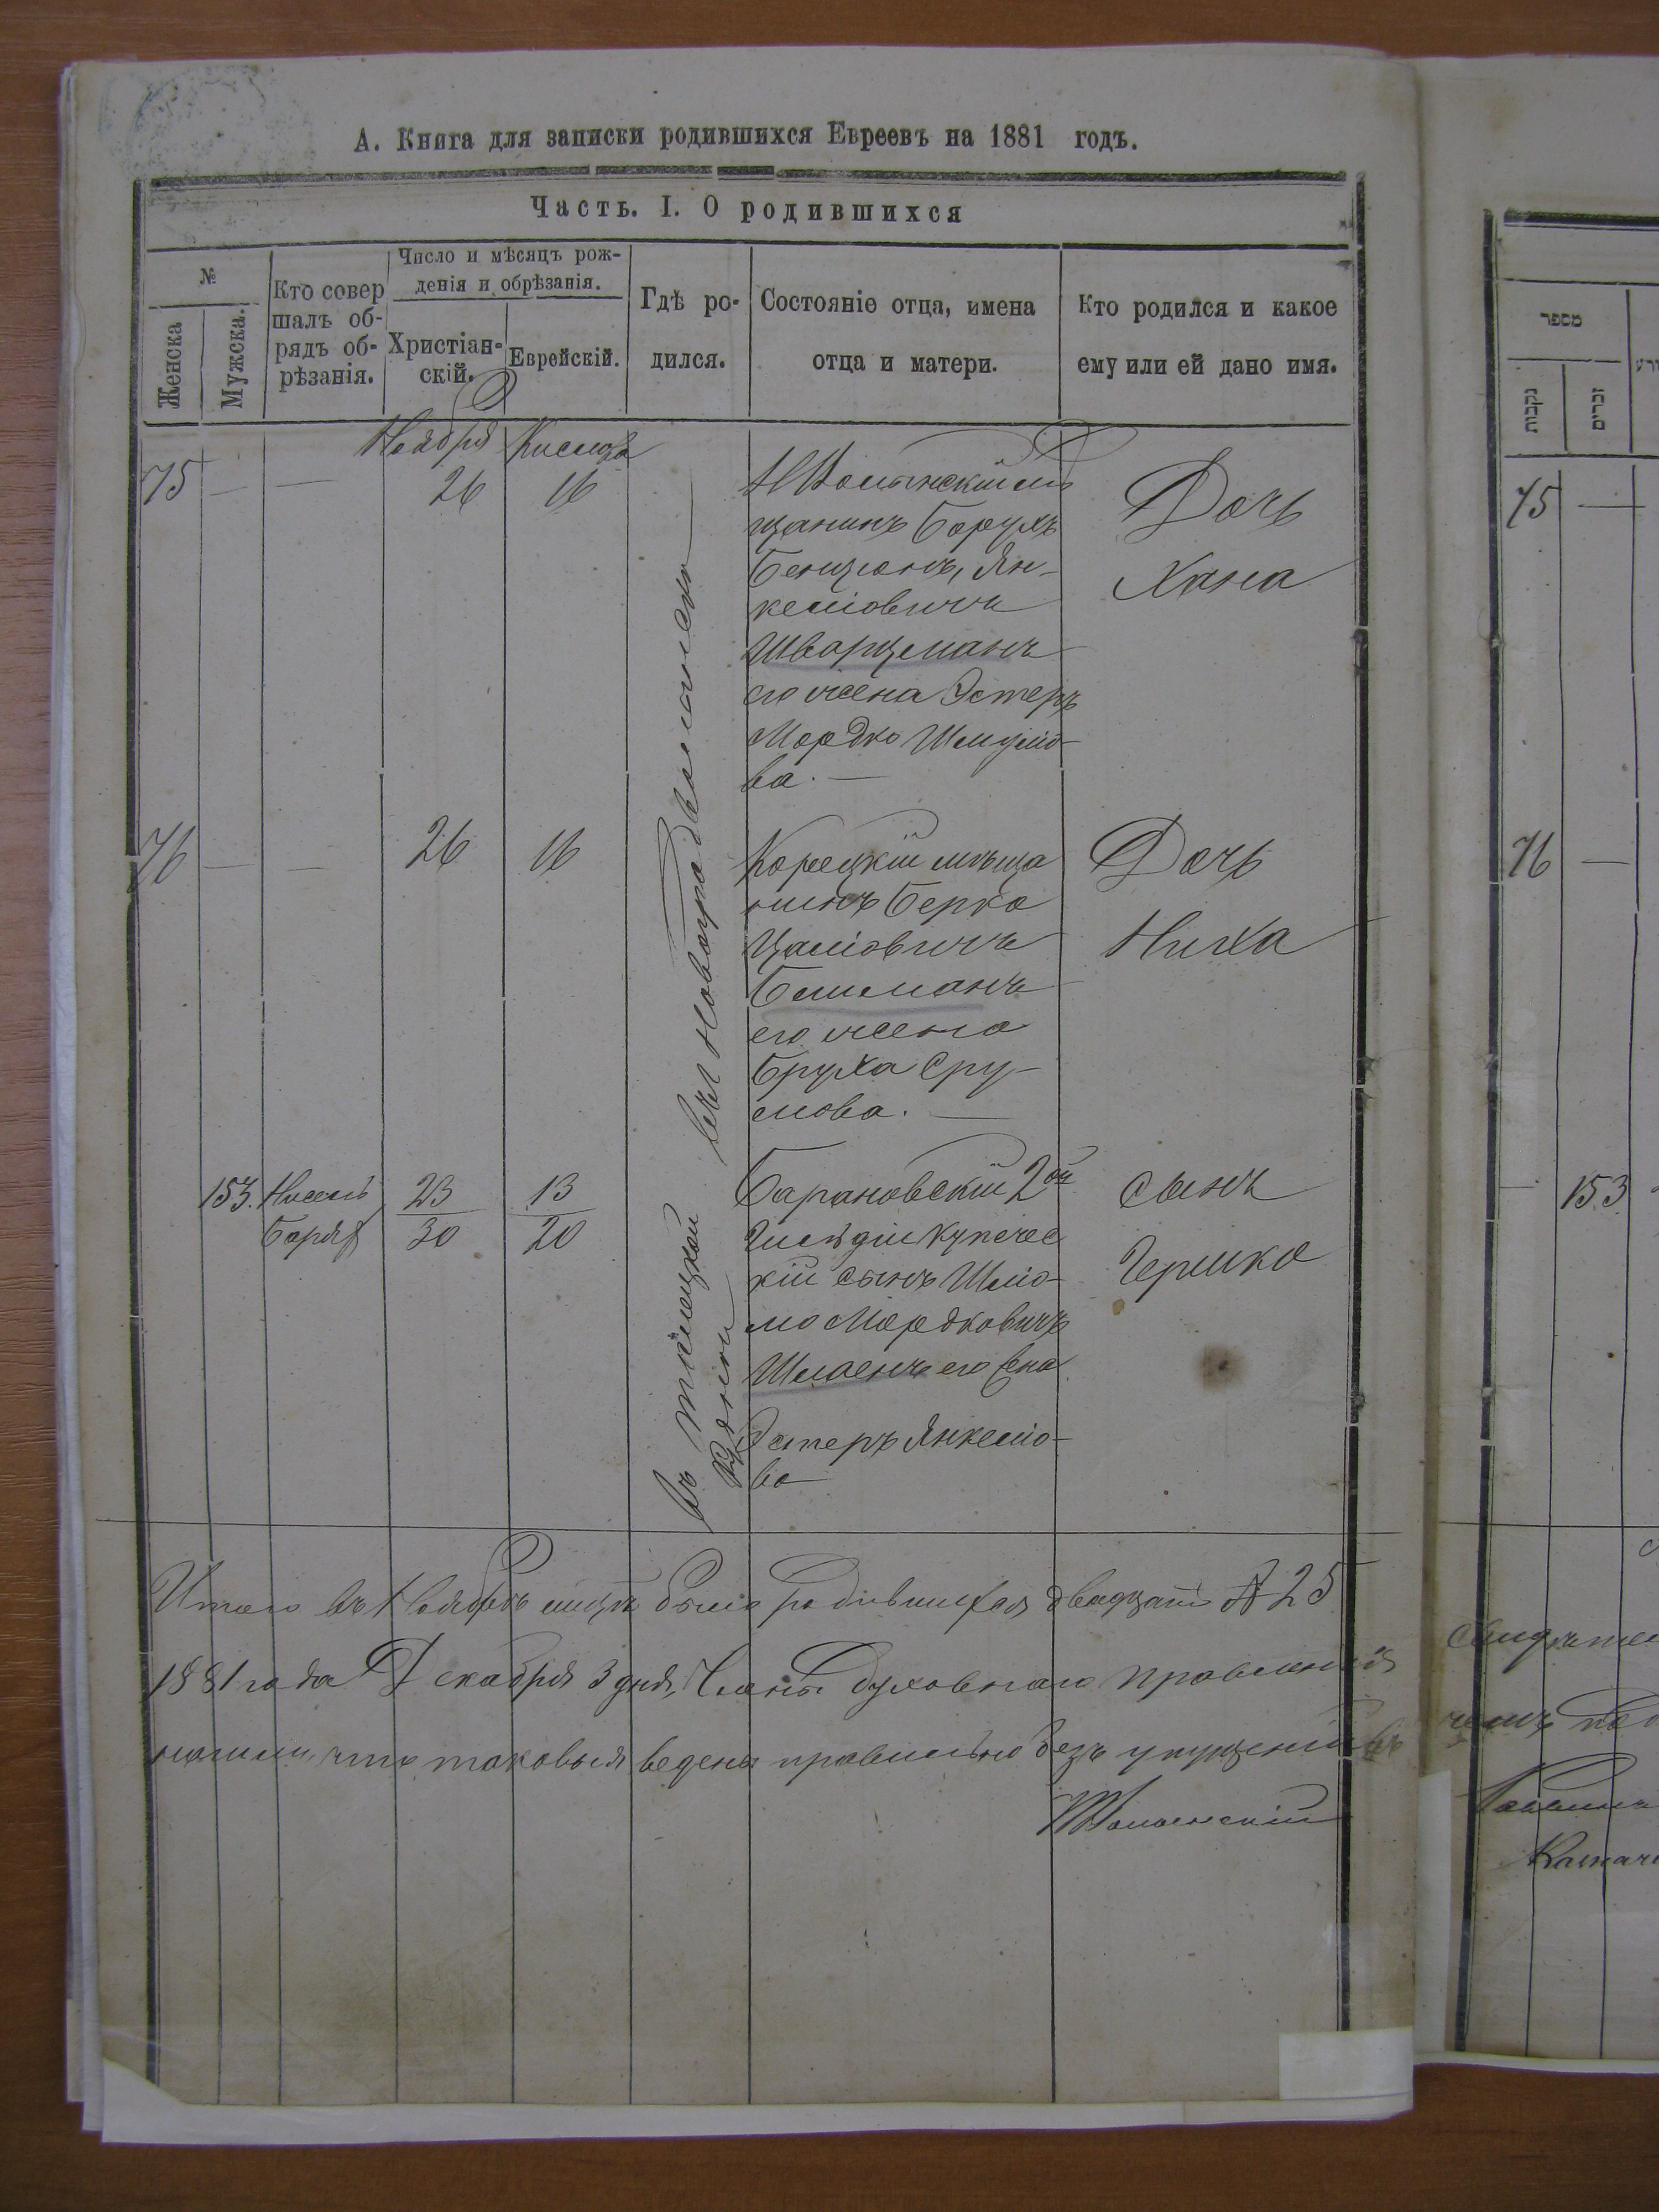 А. Книга для записки родившихся Евреевъ на 1881 годъ.
Часть. I. О родившихся
№
Женска
Мужска.
Кто совер
шалъ об-
рядъ об-
рѣзанія.
Число и мѣсяцъ рож-
денія и обрѣзанія.
Христіан-
скій.
Еврейскій.
Гдѣ ро-
дился.
Состояніе отца, имена
отца и матери.
Кто родился и какое
ему или ей дано имя.
Ноября Кислева
75 — — 26 16
Н Волынскій мѣ
щанинъ Борухъ
Бенціонъ, Ян-
келіовичъ
Шварцманъ
его жена Эстеръ
Мордко Шмуліо-
ва. —
Дочь
Хана
въ Новоградволынскѣ
76 — — 26 16
Корецкій мѣща
нинъ Берко
Цаліовичъ
его жена
Бруха Сру-
лова. —
Дочь
Ниха
153. Нисель
23
30
13
20
въ
Барановскій 2ой
Гильдіи Купечес
кій сынъ Шліо-
мо Мордковичъ
его жена
Эстеръ Янкеліо-
ва
сынъ
Гершко
Итого въ Ноябрѣ мѣсяцѣ было родившихся двадцать 25
1881 года Декабря 3 дня, Члены Духовнаго Правленія
нашли, что таковыя ведены правильно безъ упущеній
מספר
נקבות
זכרים
75 —
76 —
— 153